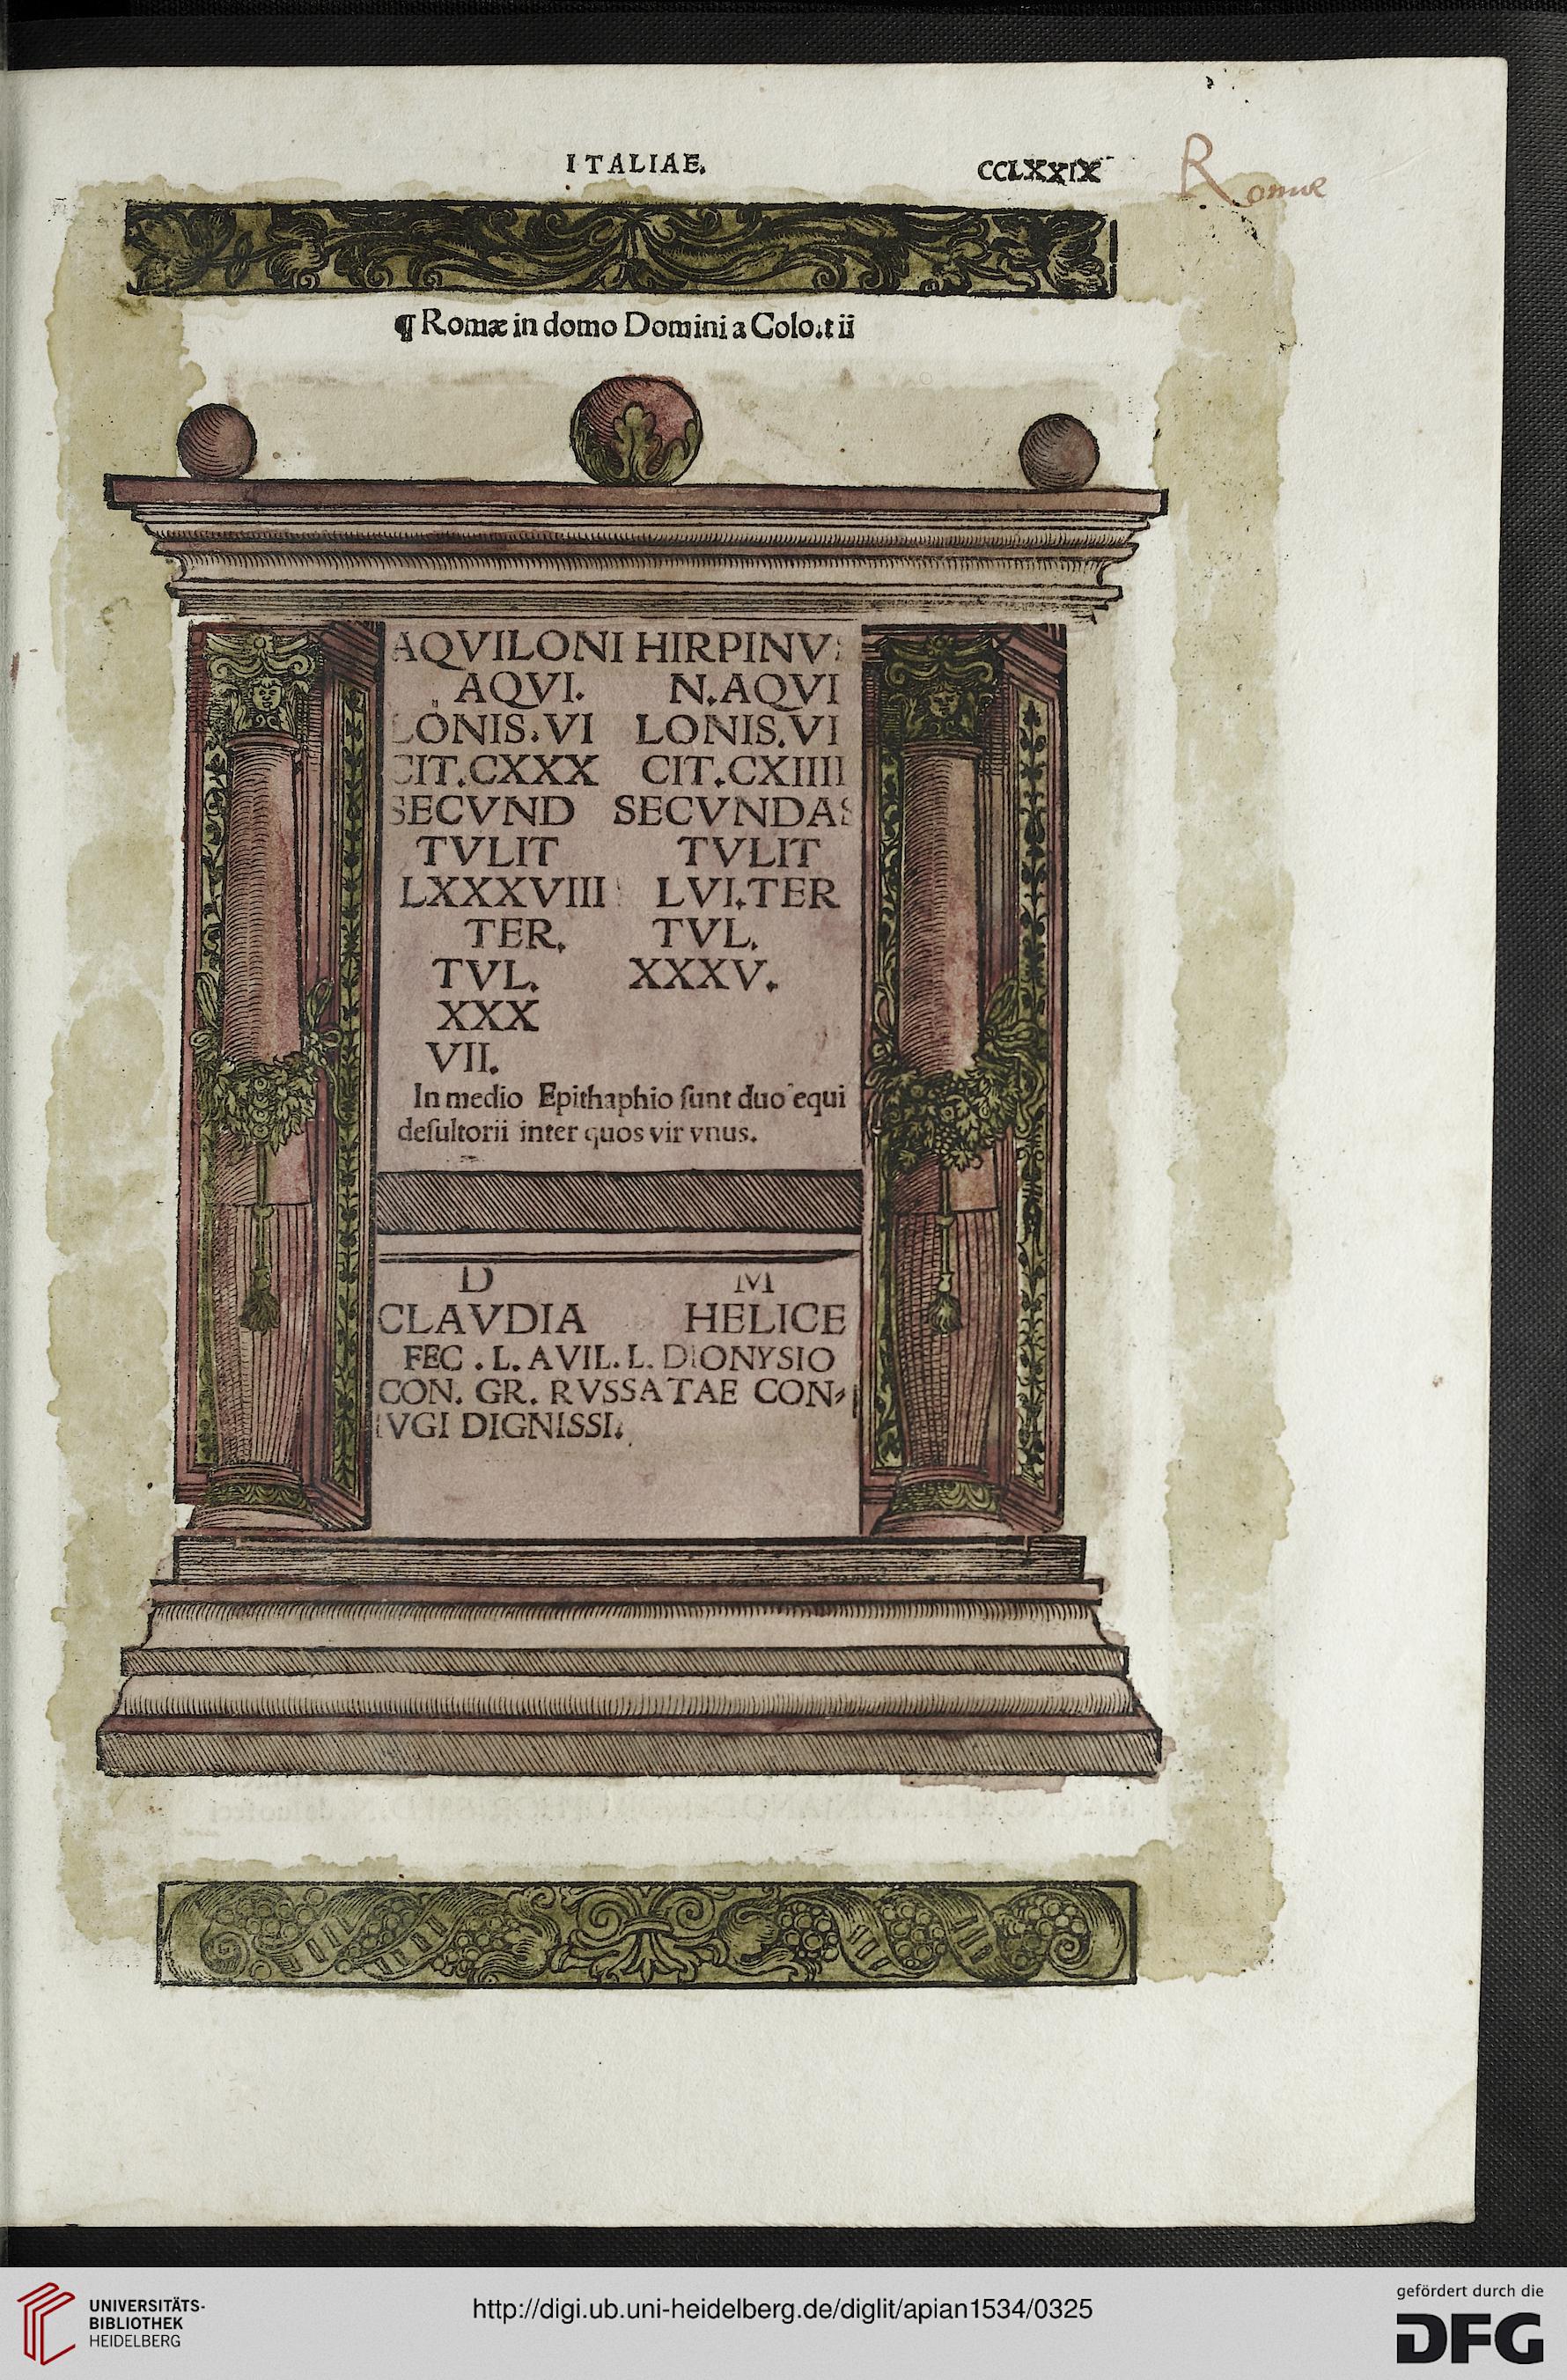 ITALIAE.
CCLXXIX
Romae
¶ Romæ in domo Domini a Colotii
AQVILONI HIRPINVS
AQVI. N.AQVI
LONIS.VI LONIS.VI
CIT.CXXX CIT.CXIIII
SECVND SECVNDAS
TVLIT TVLIT
LXXXVIII LVI.TER
TER. TVL.
TVL. XXXV.
XXX
VII.
In medio Epithaphio ſunt duo equi
deſultorii inter quos vir vnus.
D M
CLAVDIA HELICE
FEC . L. AVIL. L. DIONYSIO
CON. GR. RVSSATAE CON⸗
IVGI DIGNISSI.
UNIVERSITÄTS-
BIBLIOTHEK
HEIDELBERG
http://digi.ub.uni-heidelberg.de/diglit/apian1534/0325
gefördert durch die
DFG